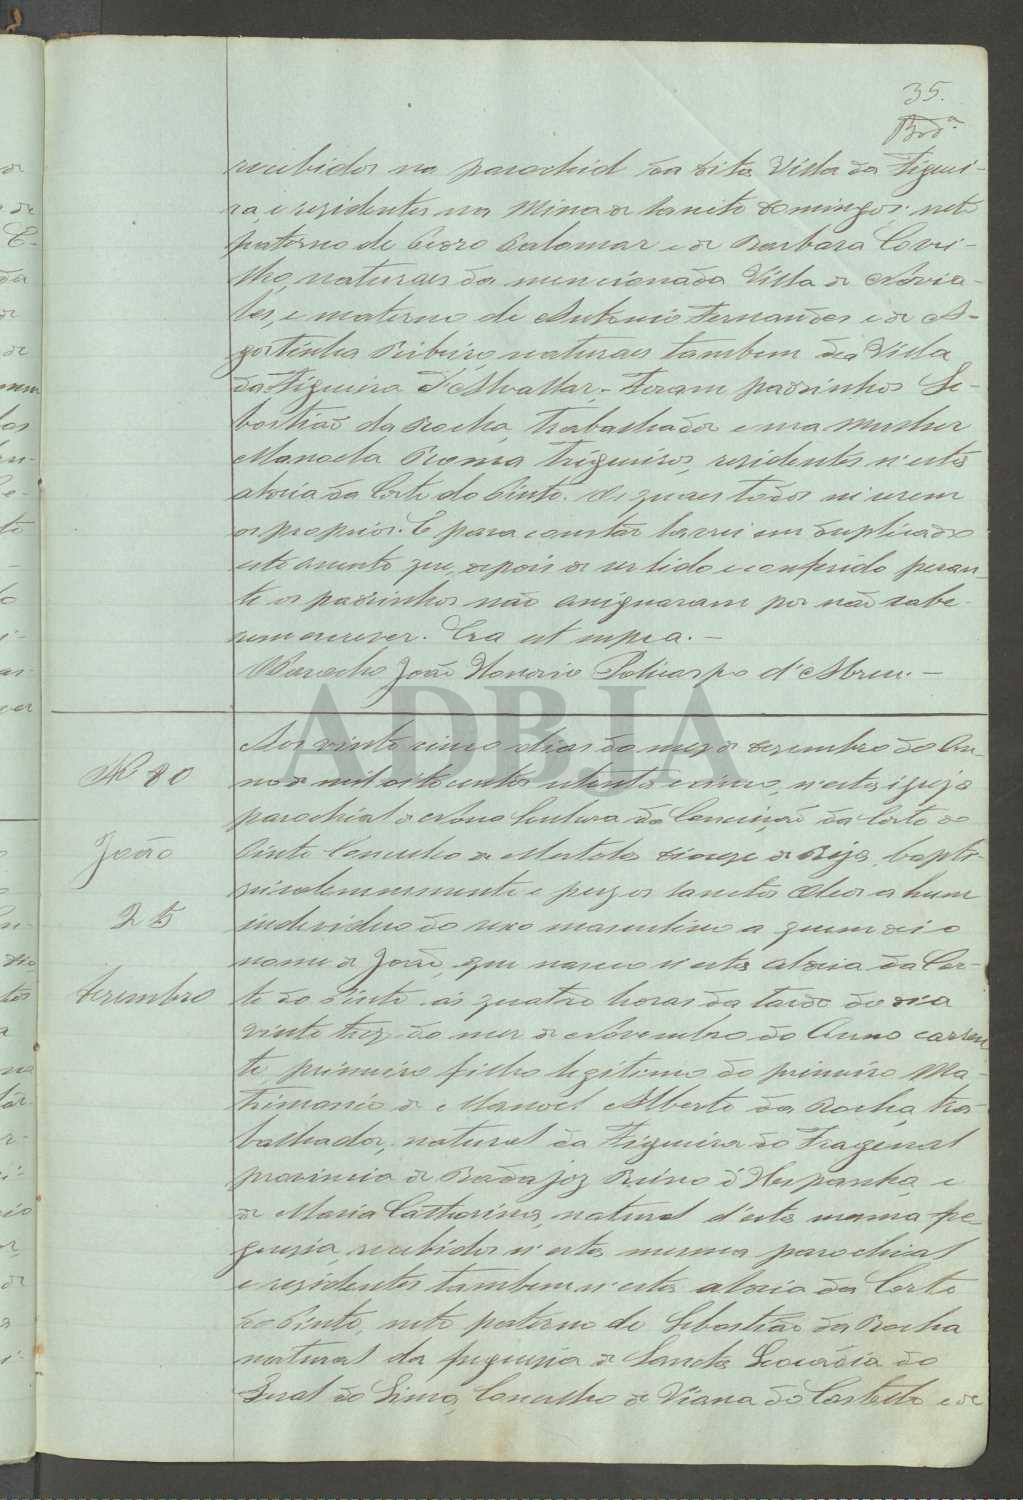 35.
recebidos na parochial da dita Villa da Figuei-
ra, e residentes na Mina de Sancto Domingos: neto
paterno de Pedro Palomar e de Barbara Covi-
lho, naturaes da mencionada Villa de
e materno de Antonio Fernandes e de A-
gostinha Ribeiro, naturaes tambem da Villa
da Figueira d'Alvallar. Foram padrinhos Se-
bastião da Rocha, trabalhador e sua mulher
Manoela Roma Trigueiros, residentes n'esta
aldeia da Corte do Pinto. os quaes todos
os proprios. E para constar lavrei em duplicado
este assento que, depois de ser lido e conferido peran-
te os padrinhos não assignaram por não sabe-
rem escrever. Era ut supra. —
O Parocho João Honorio Policarpo d'Abreu. —
ADBJA
Nº 80
João
25
Dezembro
Aos vinte cinco dias do mez de Dezembro do An-
no de mil oitocentos oitenta e cinco, n'esta igreja
parochial de Nossa Senhora da Conceição da Corte do
Pinto Concelho de Mertola diocese de Beja, bapti-
zei solemnemente e puz os sanctos Oleos a hum
individuo do sexo masculino a quem dei o
nome de João, que nasceu n'esta aldeia da Cor-
te do Pinto ás quatro horas da tarde do dia
vinte trez do mez de Novembro do Anno corren
te, primeiro filho legitimo do primeiro Ma-
trimonio de Manoel Alberto da Rocha, tra-
balhador, natural da Figueira do Fragenal
provincia de Badajoz Reino d'Hespanha, e
de Maria Catharina, natural d'esta mesma fre-
guesia, recebidos n'esta mesma parochial
e residentes tambem n'esta aldeia da Corte
do Pinto, neto paterno de Sebastião da Rocha
natural da freguesia de Sancta Leocadia do
Geral do Lima, Concelho de Viana do Castello e de